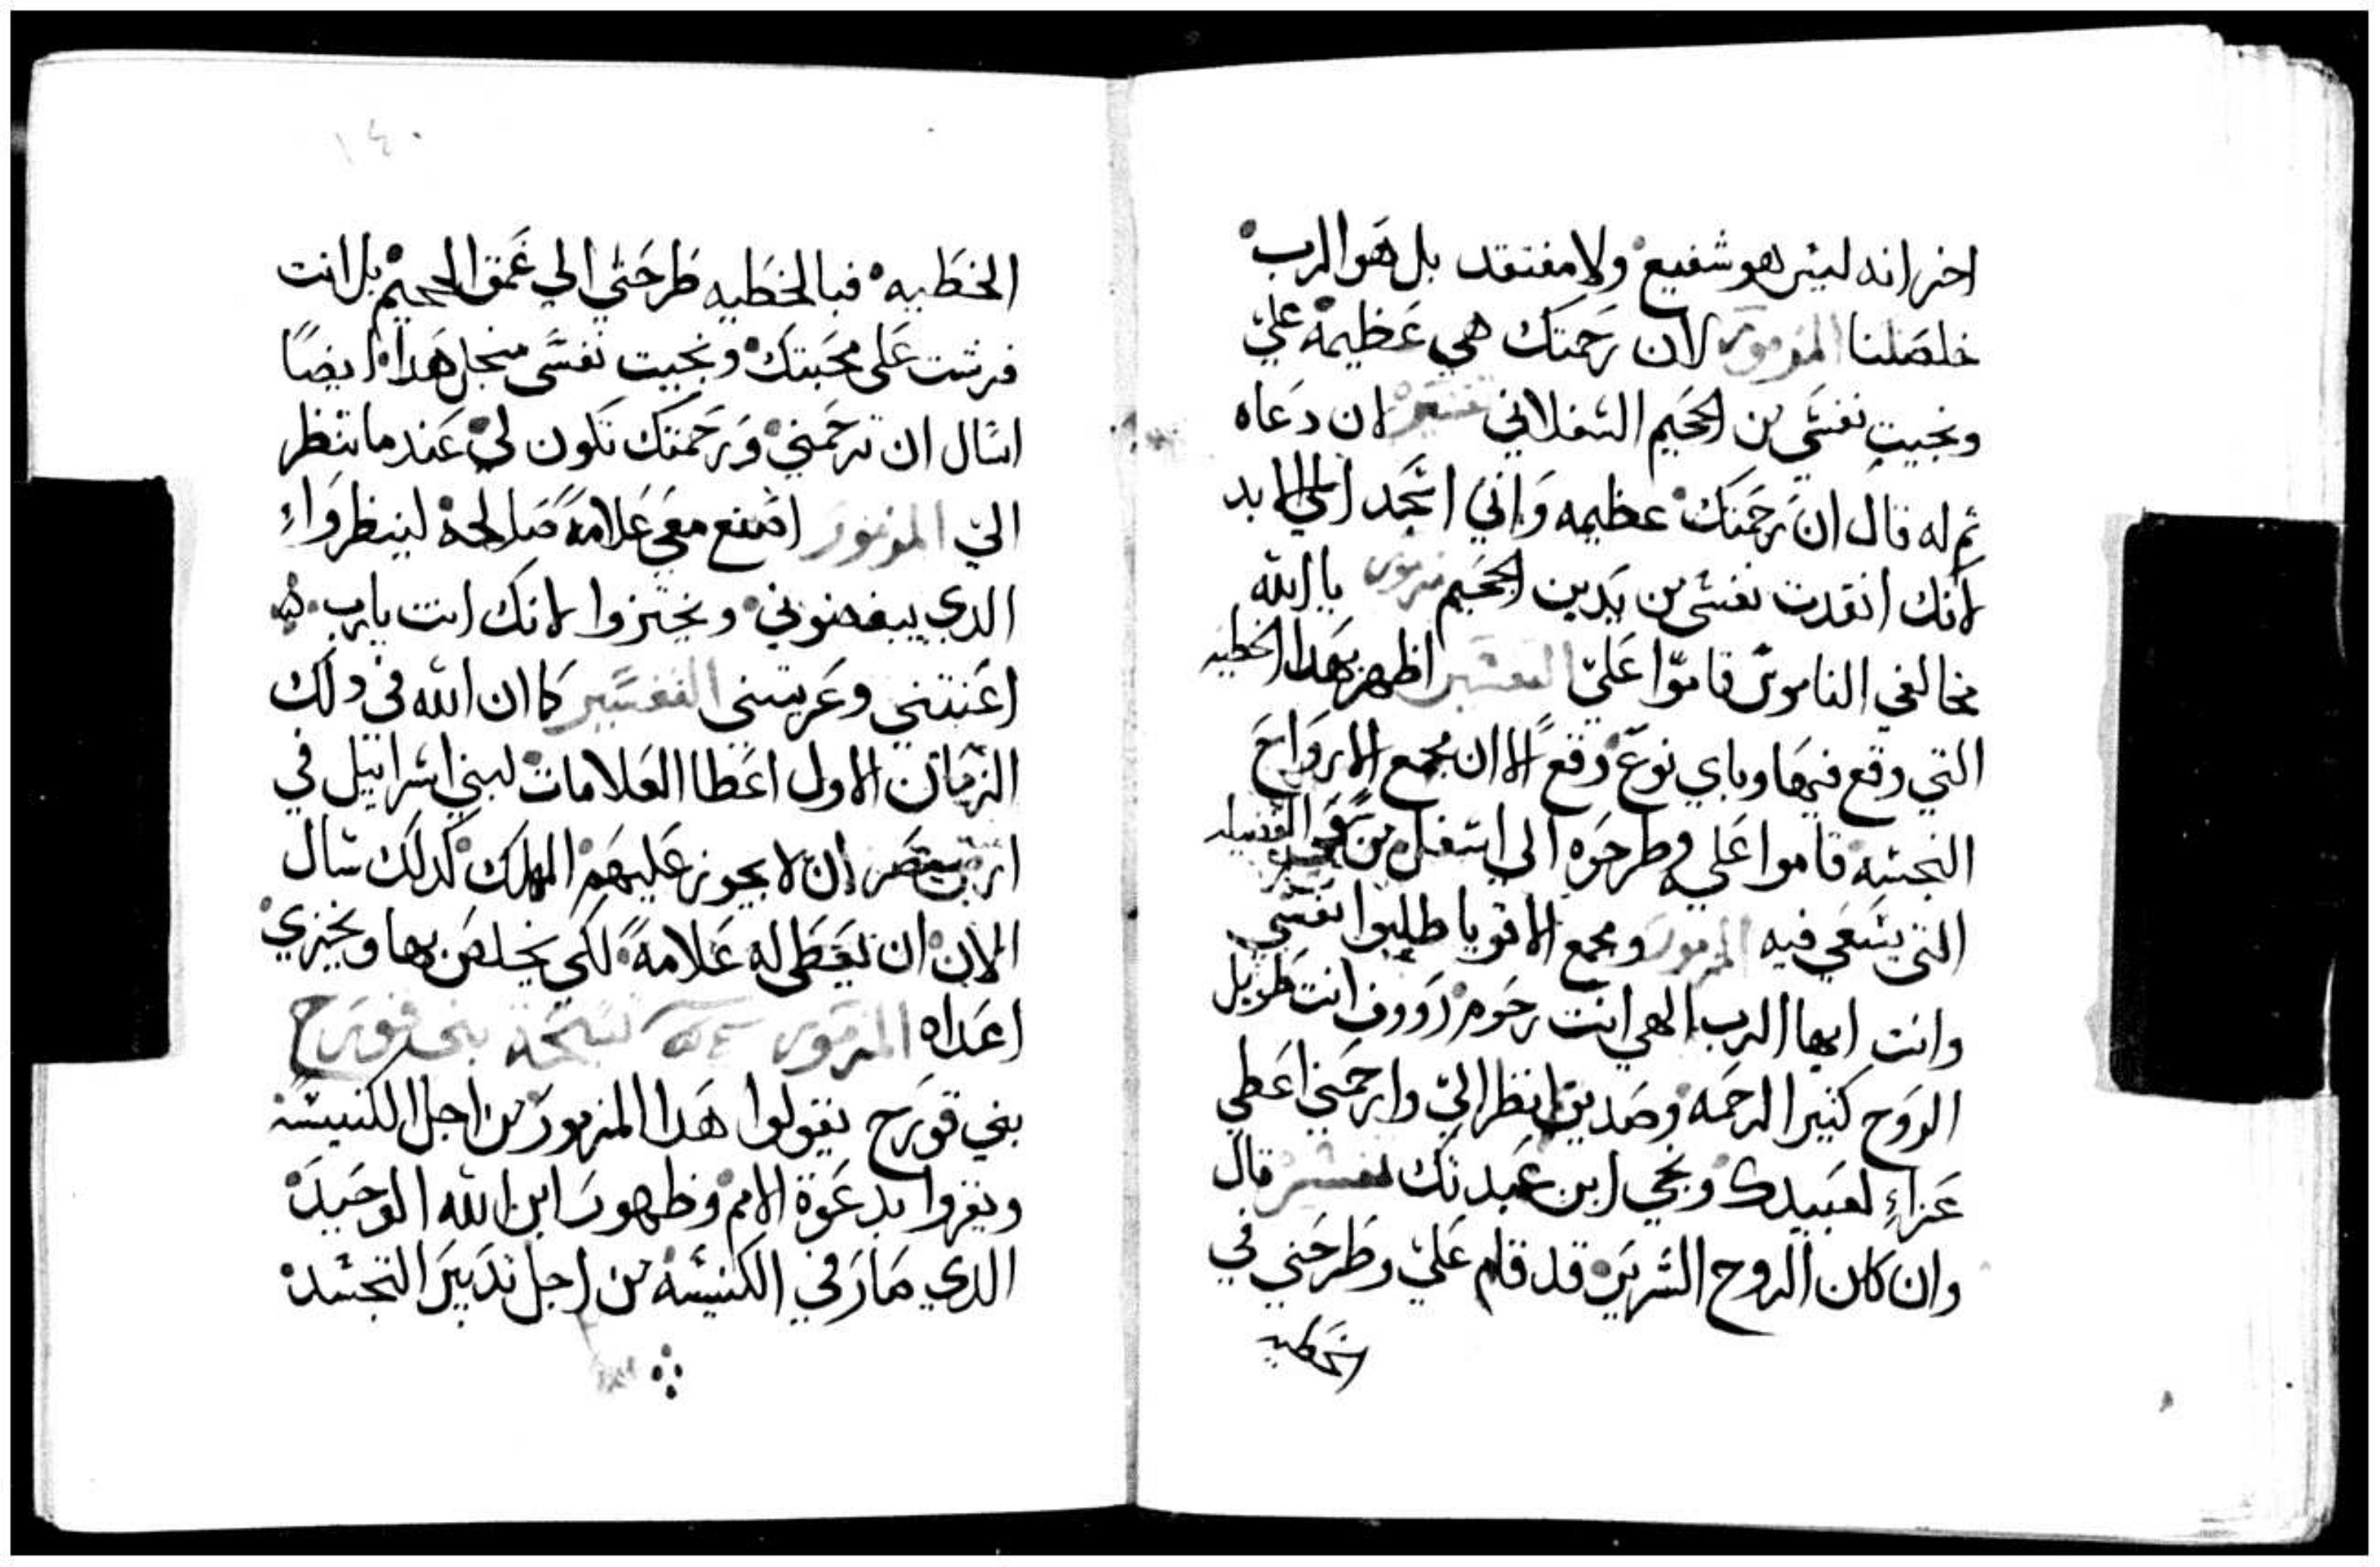 اخر انه ليس هو شفيع ولا مفتقد بل هو الرب
خلصلنا المزمور لان رحمتك هي عظيمة علي
ونجيت نفسي من الجحيم السفلاني تفسير لان دعاه
ثم له قال ان رحمتك عظيمه واني اتمجد الي الابد
لانك انقدت نفسي من يدين الجحيم مزمور يا الله
مخالفي الناموس قاموا علي التفسير اظهر بهدا الخطيه
التي وقع فيها وباي نوع وقع الا ان مجمع الارواح
النجسه قاموا علي وطرحوه الي اسفل من
التي يسعي فيه المزمور ومجمع الاقويا طلبوا نفسي
وانت ايها الرب الهي انت رحوم رووف انت طويل
الروح كثير الرحمه وصديق انظر الي وارحمني اعطي
عزاء لعبيدك ونجي ابن عبدتك تفسير قال
وان كان الروح الشرير قد قام علي وطرحني في
الخطيه
١٤٠
الخطيه فبالخطيه طرحتي الي عمق الجحيم بل انت
فرشت علي محبتك ونجيت نفسي منجل هدا ايضا
اسال ان ترحمني ورحمتك تكون لي عند ما تنظر
الي المزمور اصنع معي علامة صالحة لينظروا
الدي يبغضوني ويخزوا لانك انت يارب
اعنتني وعزيتني التفسير كما ان الله في دلك
الزمان الاول اعطا العلامات لبني اسرائيل في
ارض مصر ان لا يجوز عليهم الهلاك كدلك سال
الان ان تعطي له علامة لكي يخلص بها ويخزي
اعداه المزمور نسحة بني قورح
بني قورح يقولوا هدا المزمور من اجل الكنيسة
ويقروا بدعوة الامم وظهور ابن الله الوحيد
الدي صار في الكنيسة من اجل تدبير التجسد